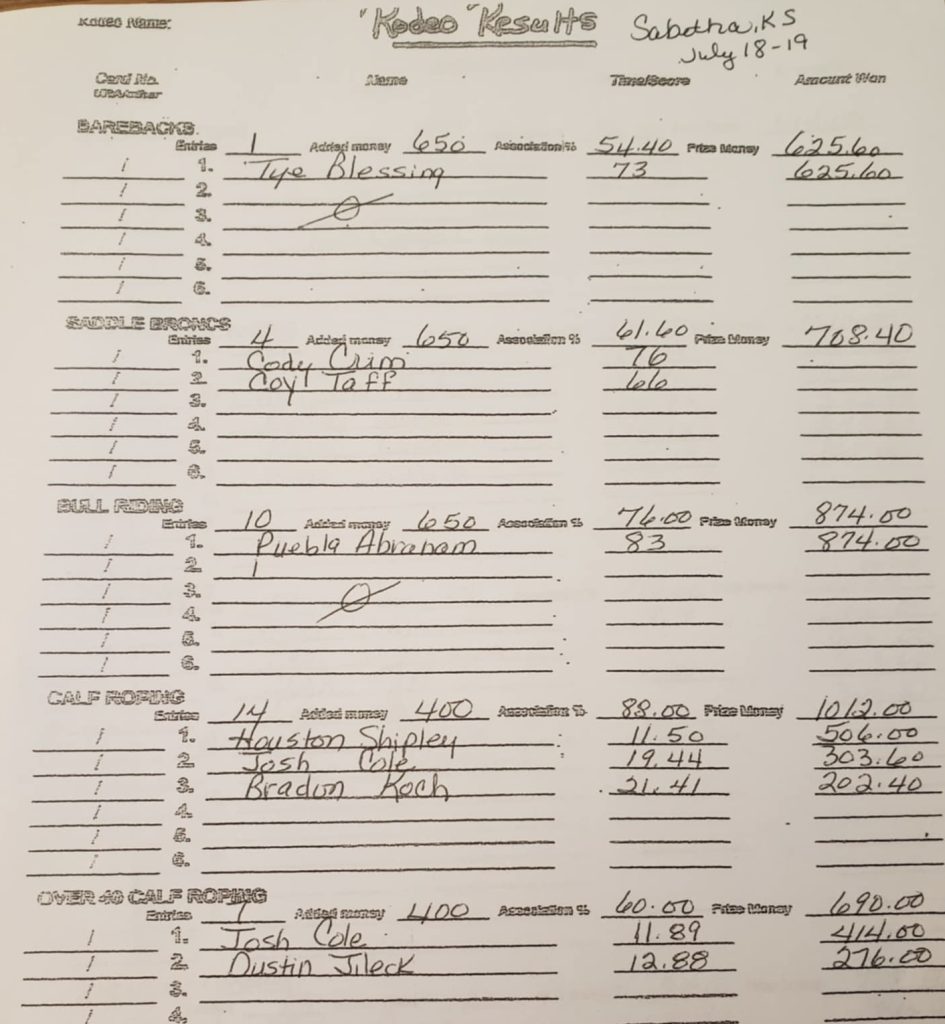 Rodeo Name: "Rodeo" Results Sabetha, KS
July 18-19
Card No. Name Time/Score Amount Won
BAREBACKS
Entries 1 Added money 650 Association % 54.40 Prize Money 625.60
/ 1. Tye Blessing 73 625.60
/ 2.
/ 3.
/ 4.
/ 5.
/ 6.
SADDLE BRONCS
Entries 4 Added money 650 Association % 61.60 Prize Money 708.40
/ 1. Cody Crim 76
/ 2. Coy Taff 66
/ 3.
/ 4.
/ 5.
/ 6.
BULL RIDING
Entries 10 Added money 650 Association % 76.00 Prize Money 874.00
/ 1. Puebla Abraham 83 874.00
/ 2.
/ 3.
/ 4.
/ 5.
/ 6.
CALF ROPING
Entries 14 Added money 400 Association % 88.00 Prize Money 1012.00
/ 1. Houston Shipley 11.50 506.00
/ 2. Josh Cole 19.44 303.60
/ 3. Bradon Koch 21.41 202.40
/ 4.
/ 5.
/ 6.
OVER 40 CALF ROPING
Entries 7 Added money 400 Association % 60.00 Prize Money 690.00
/ 1. Josh Cole 11.89 414.00
/ 2. Dustin Jileck 12.88 276.00
/ 3.
/ 4.